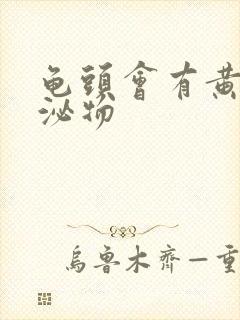 龟頭會有黄
泌物
烏魯木齊—重